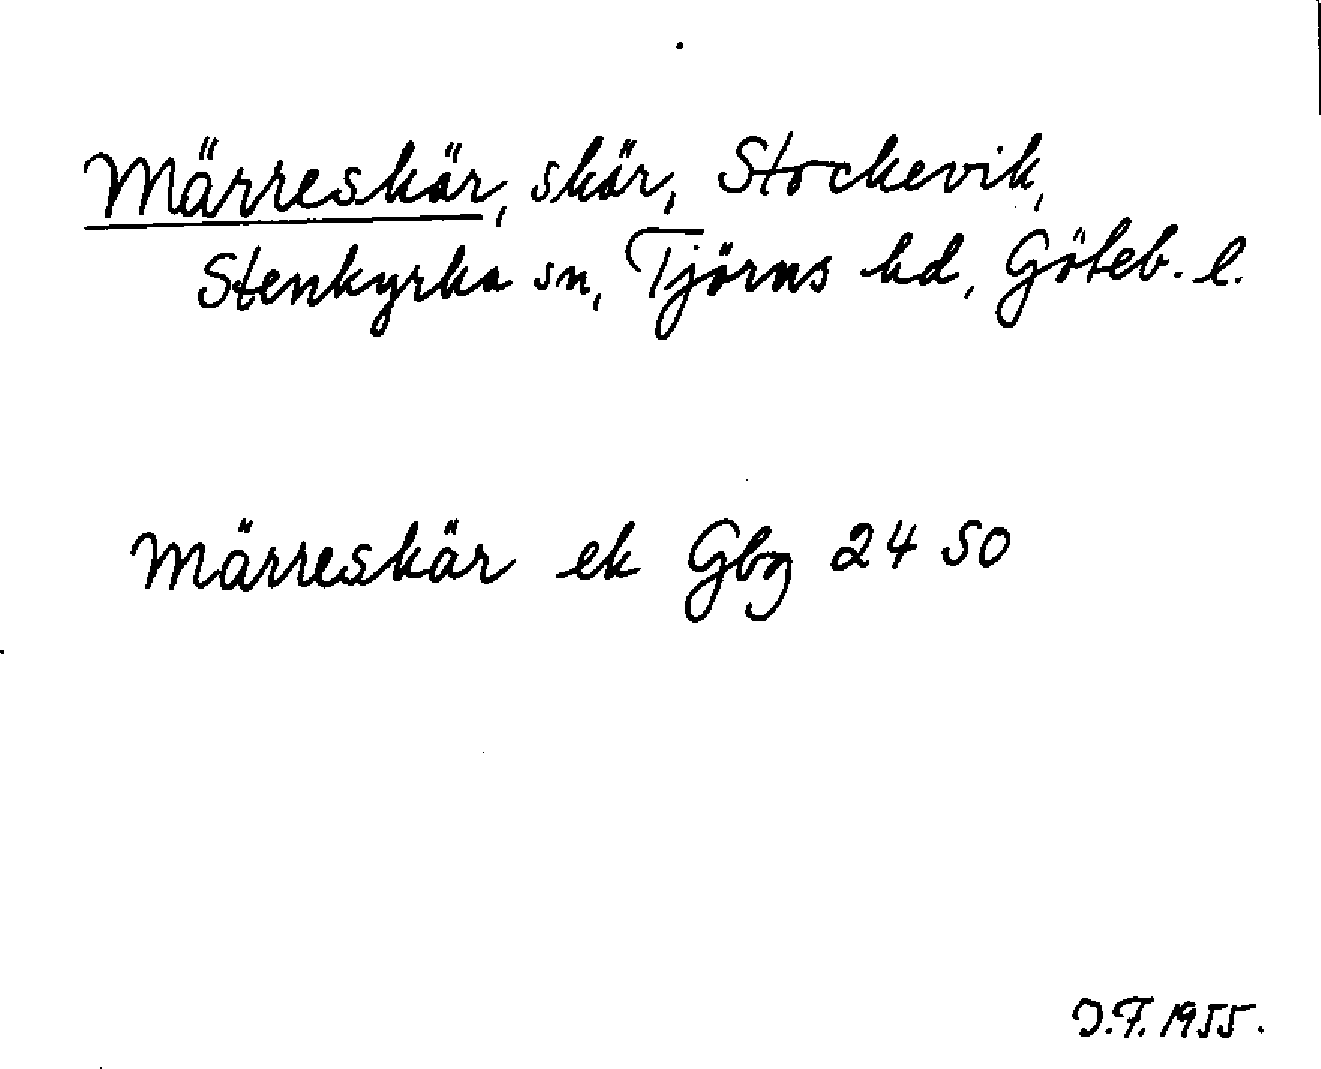 Märreskär, skär, Stockevik,
Stenkyrka sn, Tjörns hd, Göteb. l.
Märreskär ek Gbg 24 50
J.F. 1955.